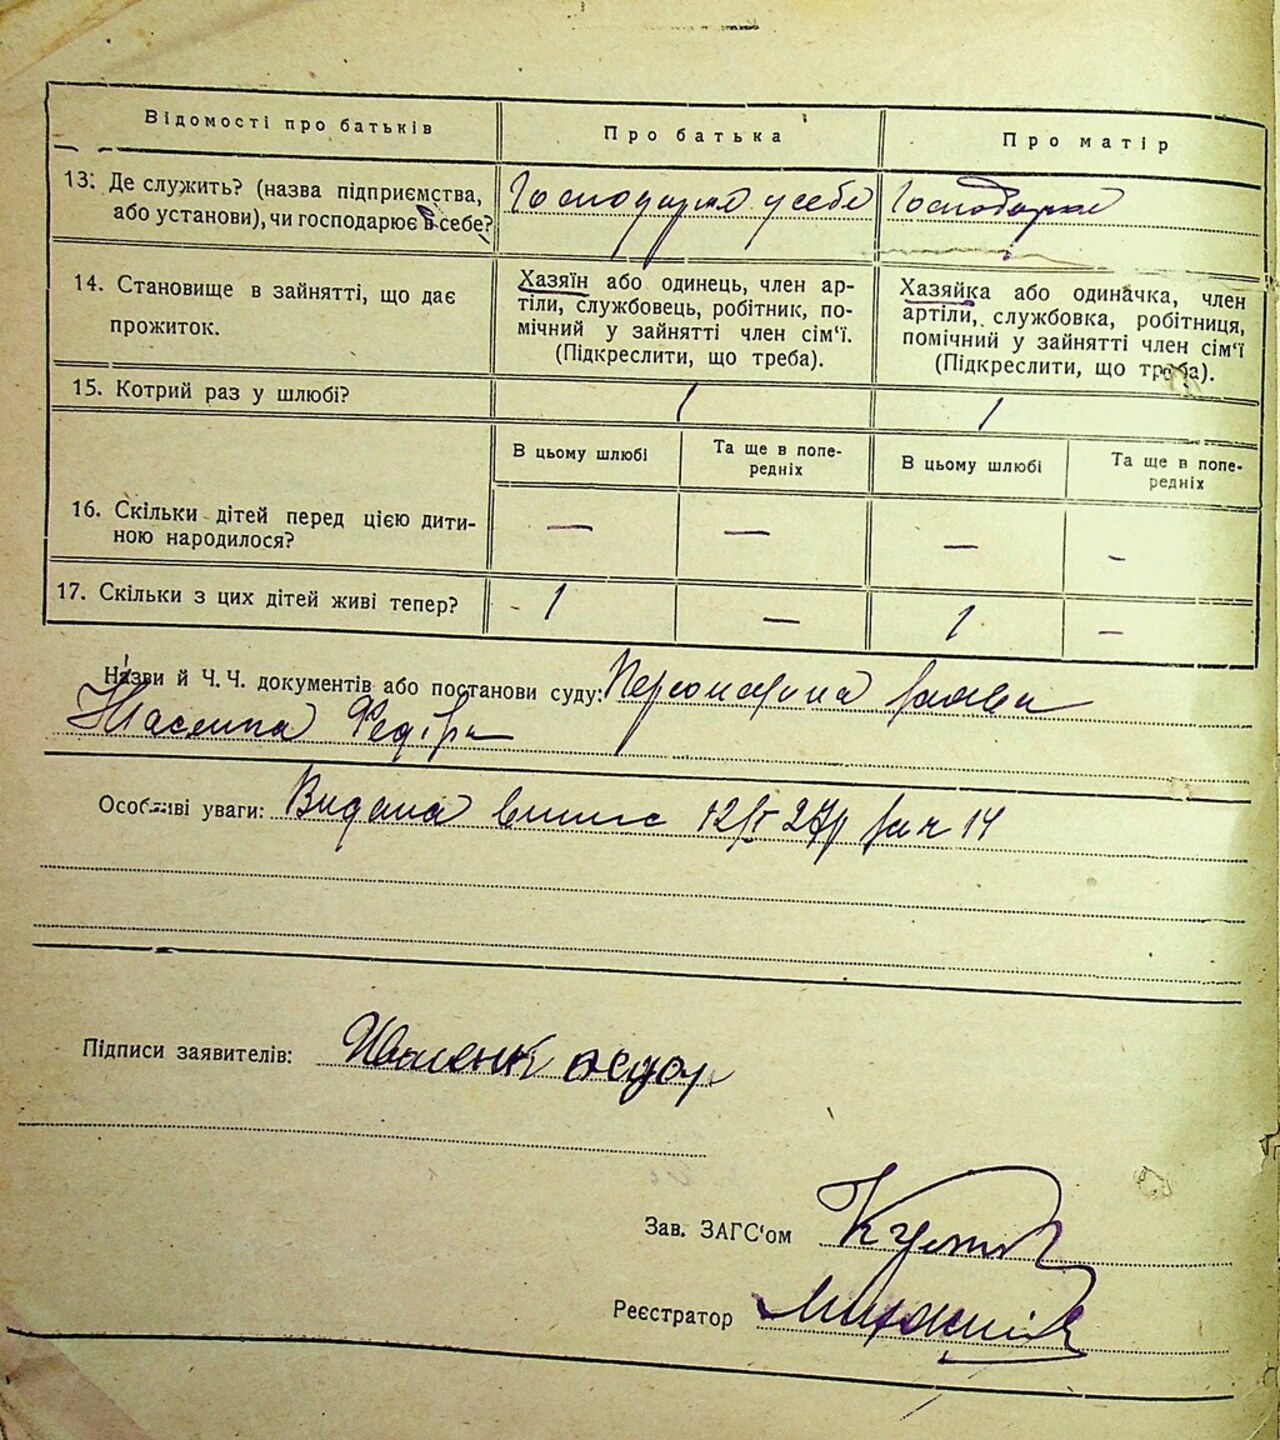 Відомості про батьків
Про батька
Про матір
13. Де служить? (назва підприємства,
або установи), чи господарює в себе?
Господарює у себе
Господарює
14. Становище в зайнятті, що дає
прожиток.
Хазяїн або одинець, член ар-
тіли, службовець, робітник, по-
мічний у зайнятті член сім'ї.
(Підкреслити, що треба).
Хазяйка або одиначка, член
артіли, службовка, робітниця,
помічний у зайнятті член сім'ї
(Підкреслити, що треба).
15. Котрий раз у шлюбі?
1
1
В цьому шлюбі
Та ще в попе-
редніх
В цьому шлюбі
Та ще в попе-
редніх
16. Скільки дітей перед цією дити-
ною народилося?
— — — –
17. Скільки з цих дітей живі тепер?
1 — 1 –
Назви й Ч. Ч. документів або постанови суду: Персональна заява
Федора
Особливі уваги: Видана випис 27р за ч 14
Підписи заявителів:
Зав. ЗАГС'ом
Реєстратор